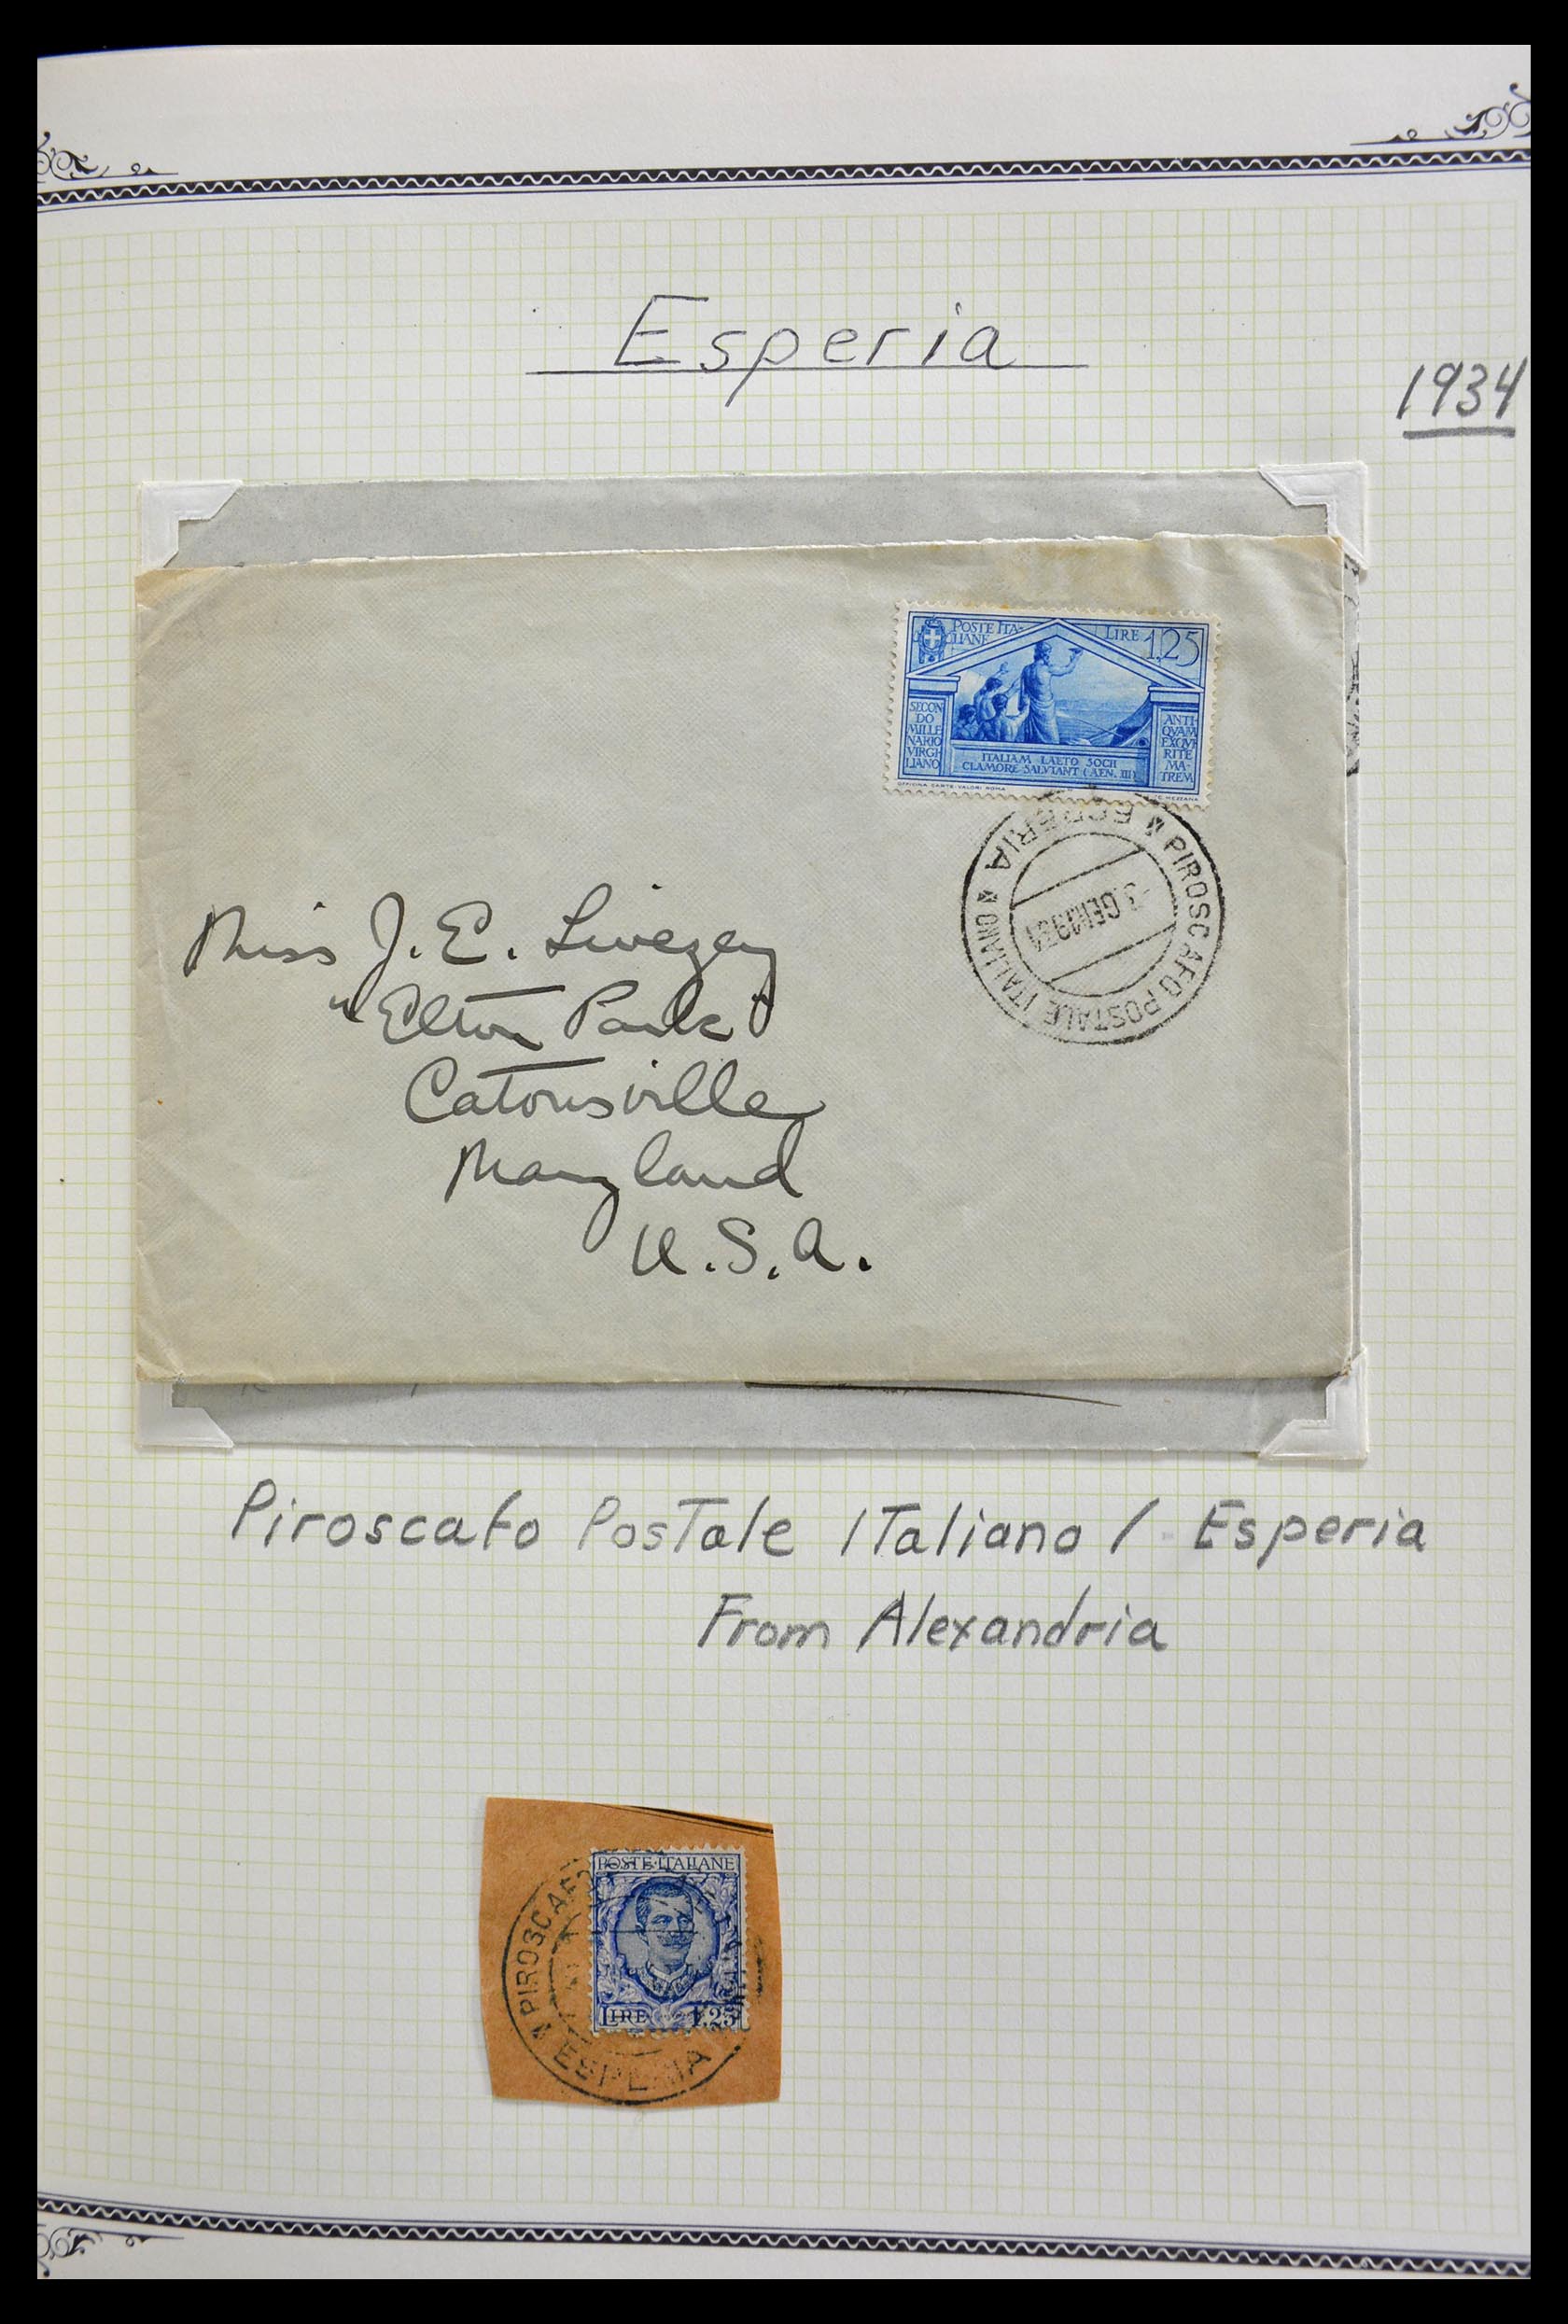 Esperia
1934
POSTE ITA-
LIANE
LIRE 1,25
SECON
DO
MILLE
NARIO
VIRGI
LIANO
ANTI-
QVAM
EXQVI
RITE
MA-
TREM
ITALIAM LAETO SOCII
CLAMORE SALVTANT (AEN. III)
OFFICINA CARTE-VALORI ROMA
MEZZANA
PIROSCAFO POSTALE ITALIANO
ESPERIA
-3.GEN.1934
Miss J. E. Livezey
"Elton Park"
Catonsville
Maryland
U.S.A.
Piroscafo Postale Italiano / Esperia
From Alexandria
POSTE·ITALIANE
LIRE 1,25
PIROSCAFO
ESPERIA